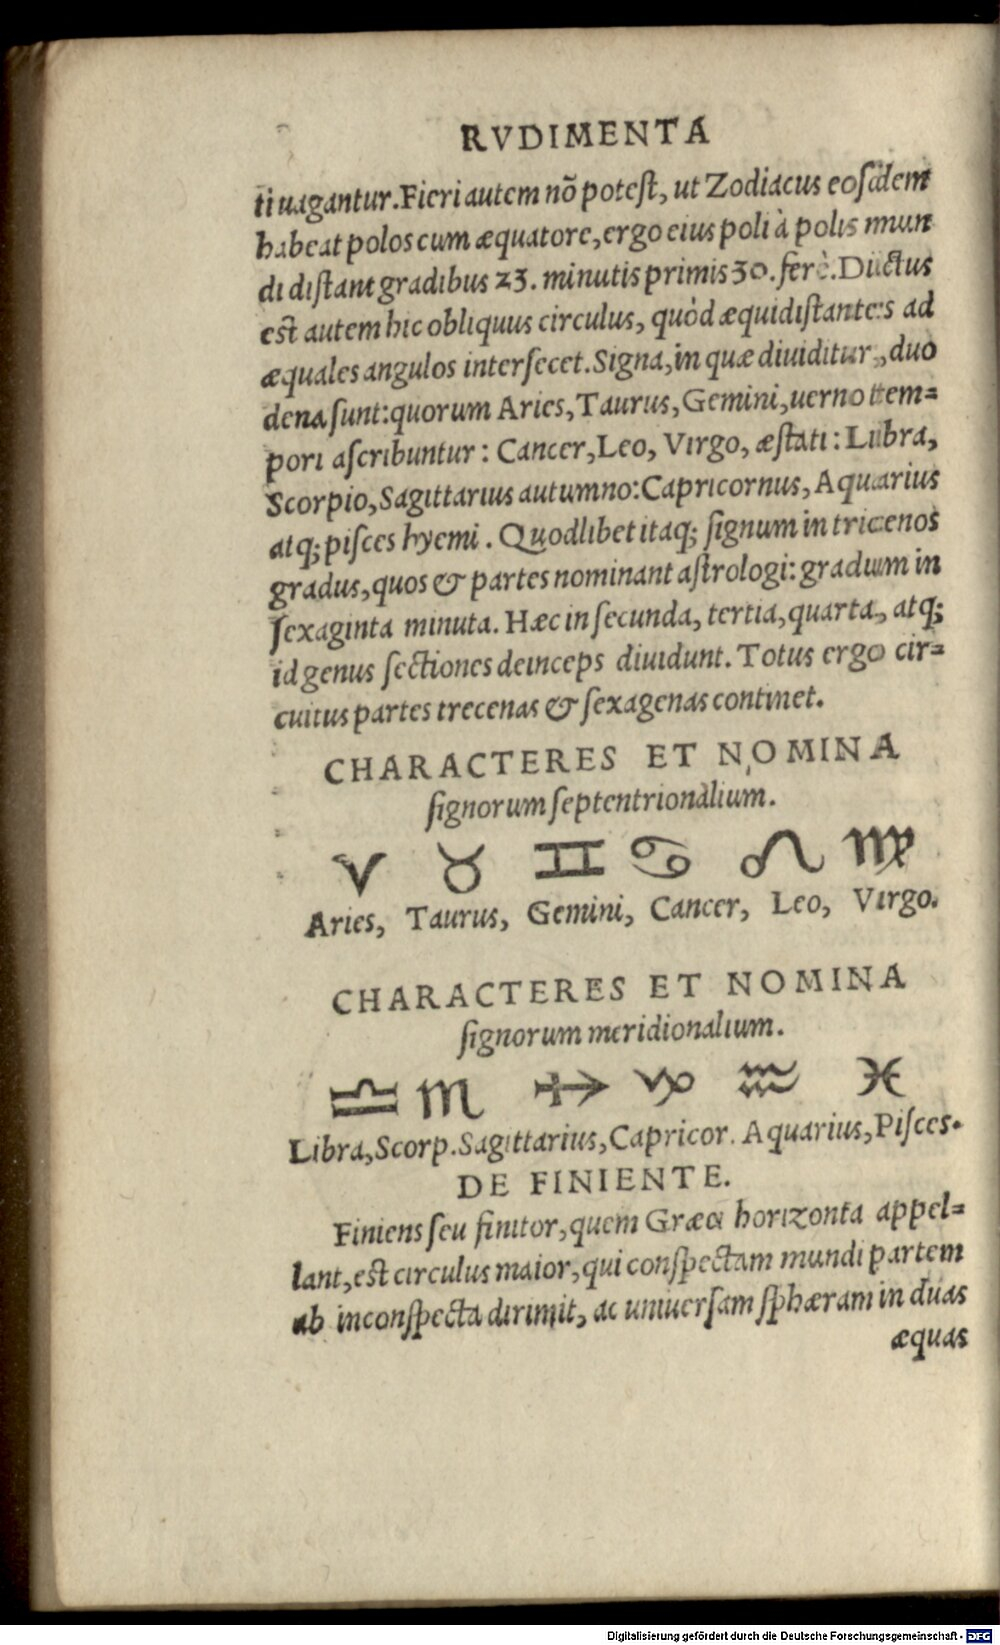 RVDIMENTA
ti uagantur. Fieri autem nõ potest, ut Zodiacus eosdem
habeat polos cum æquatore, ergo eius poli à polis mun
di distant gradibus 23. minutis primis 30. ferè. Ductus
est autem hic obliquus circulus, quòd æquidistantes ad
æquales angulos intersecet. Signa, in quæ diuiditur, duo
dena sunt: quorum Aries, Taurus, Gemini, uerno tem=
pori ascribuntur: Cancer, Leo, Virgo, æstati: Libra,
Scorpio, Sagittarius autumno: Capricornus, Aquarius
atq; pisces hyemi. Quodlibet itaq; signum in tricenos
gradus, quos & partes nominant astrologi: gradum in
sexaginta minuta. Hæc in secunda, tertia, quarta, atq;
id genus sectiones deinceps diuidunt. Totus ergo cir=
cuitus partes trecenas & sexagenas continet.
CHARACTERES ET NOMINA
signorum septentrionalium.
♈ ♉ ♊ ♋ ♌ ♍
Aries, Taurus, Gemini, Cancer, Leo, Virgo.
CHARACTERES ET NOMINA
signorum meridionalium.
♎ ♏ ♐ ♑ ♒ ♓
Libra, Scorp. Sagittarius, Capricor. Aquarius, Pisces.
DE FINIENTE.
Finiens seu finitor, quem Græci horizonta appel=
lant, est circulus maior, qui conspectam mundi partem
ab inconspecta dirimit, ac uniuersam sphæram in duas
æquas
Digitalisierung gefördert durch die Deutsche Forschungsgemeinschaft - DFG